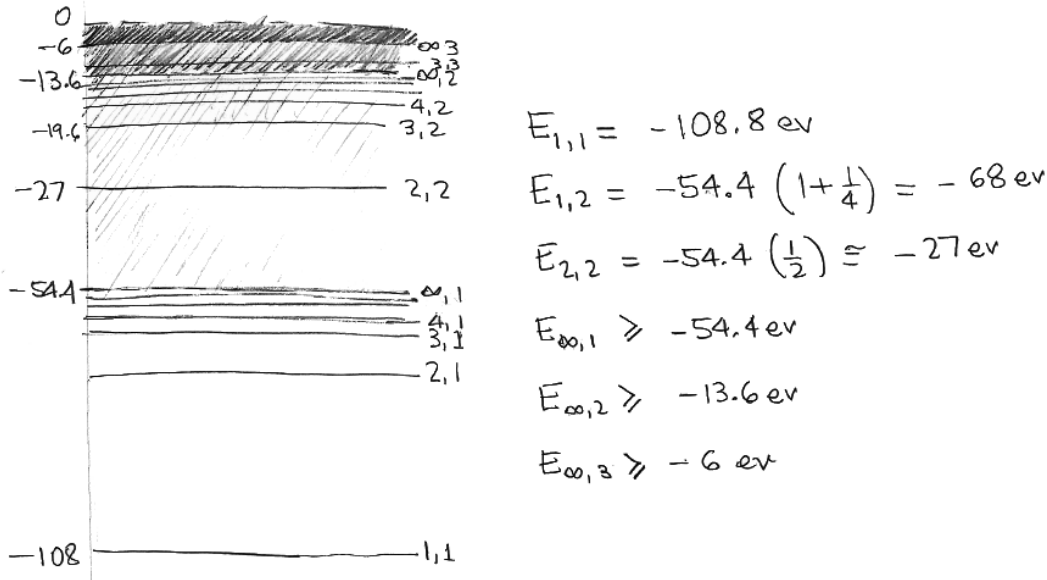 0
-6
-13.6
-19.6
-27
-54.4
-108
∞3
3,3
∞,2
4,2
3,2
2,2
∞,1
4,1
3,1
2,1
1,1
E1,1 = -108.8 ev
E1,2 = -54.4 (1+1/4) = -68 ev
E2,2 = -54.4 (1/2) ≅ -27 ev
E∞,1 ≥ -54.4 ev
E∞,2 ≥ -13.6 ev
E∞,3 ≥ -6 ev